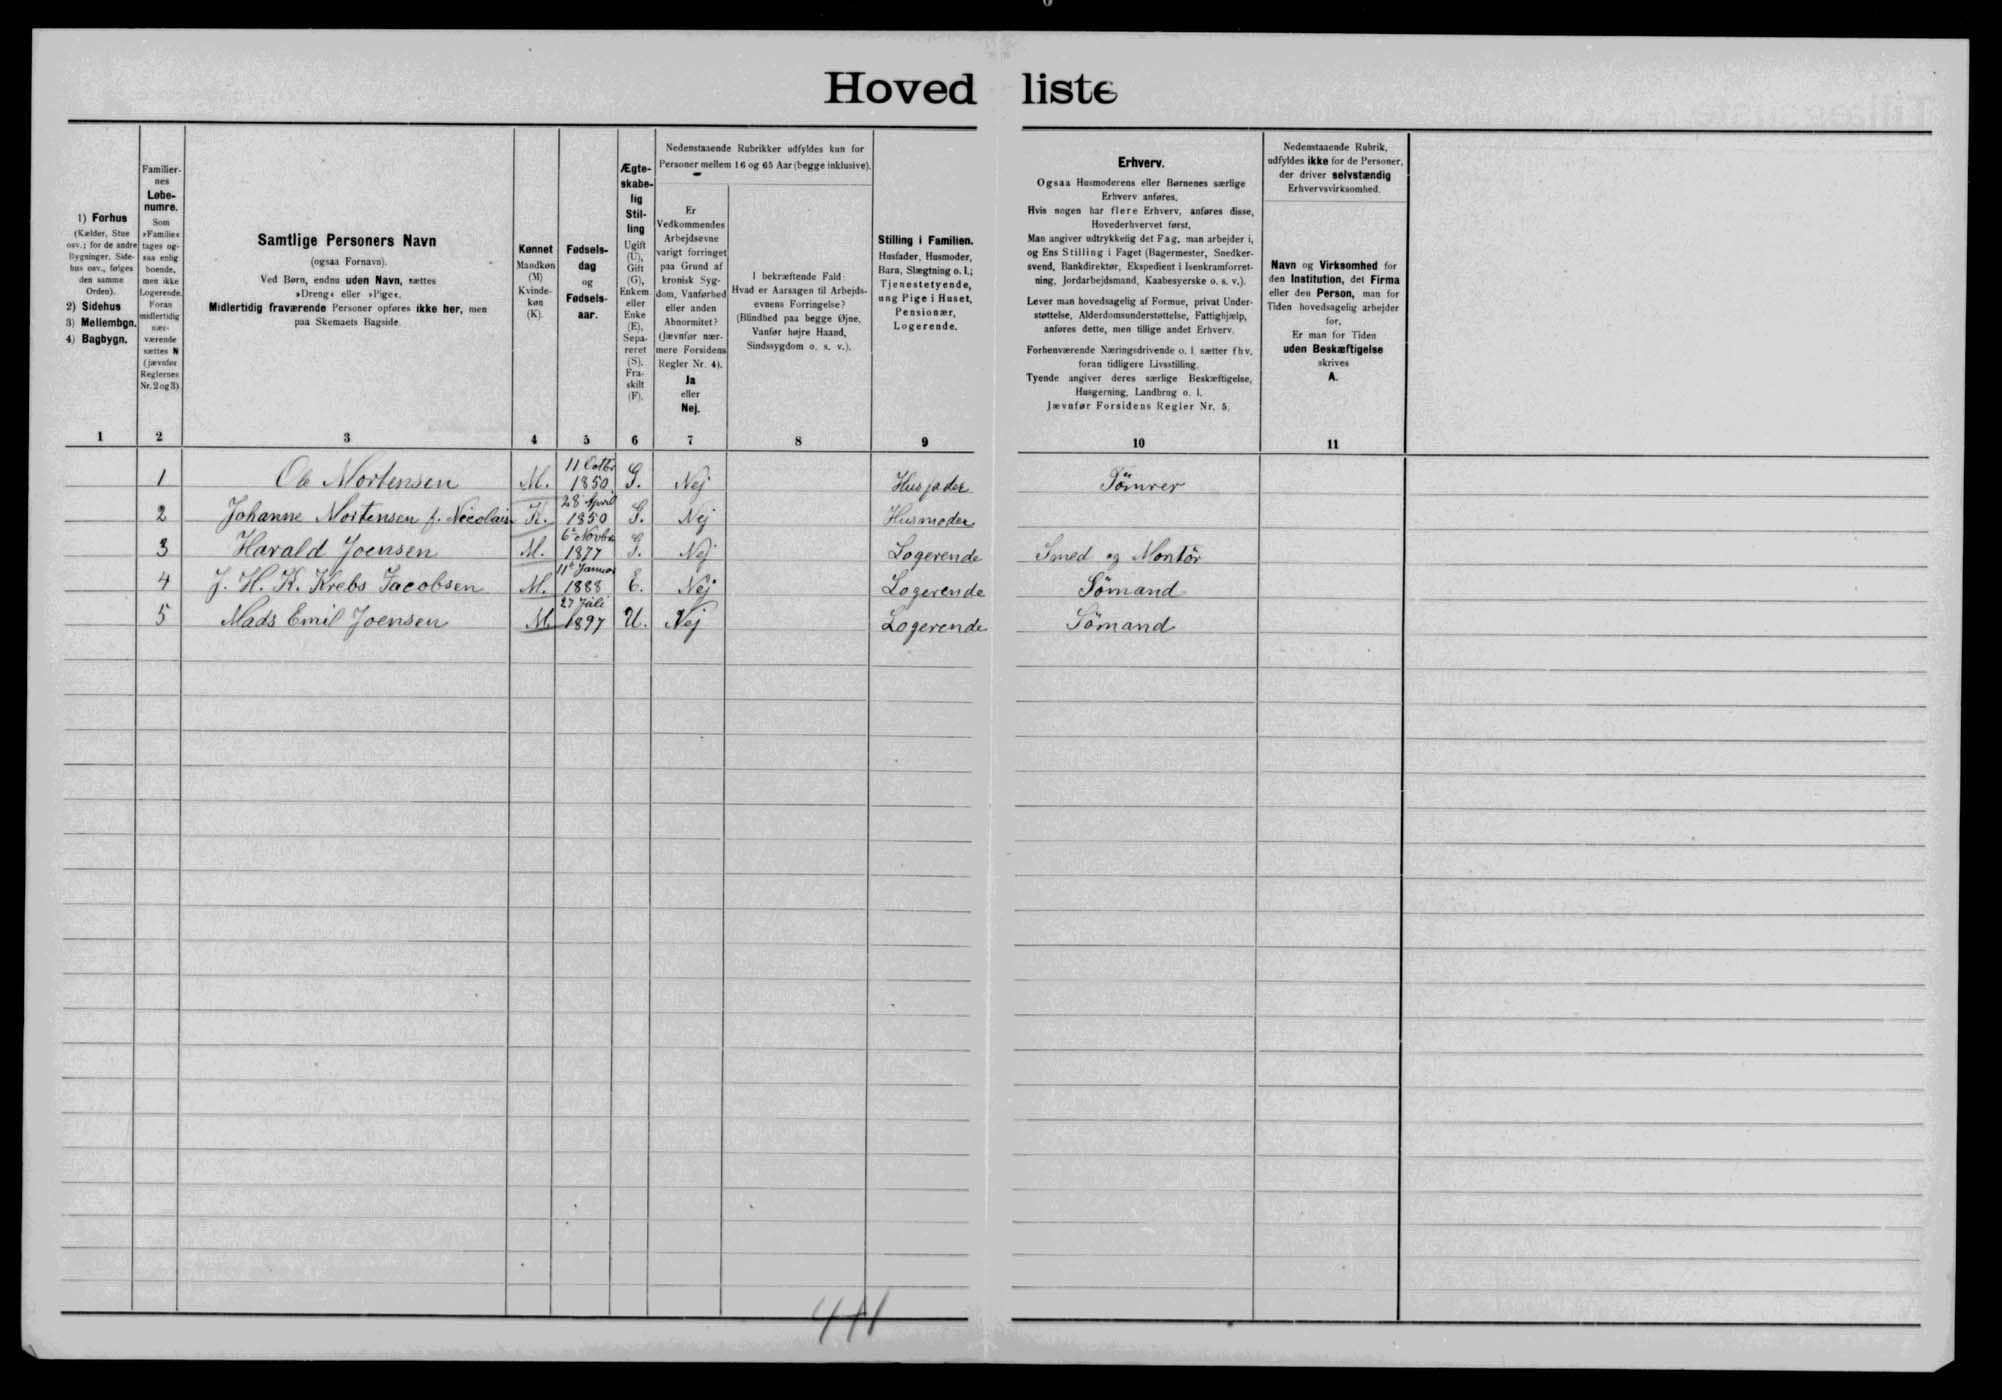 Hoved liste
1) Forhus
(Kælder, Stue
osv.; for de andre
Bygninger, Side-
hus osv., følges
den samme
Orden).
2) Sidehus
3) Mellembgn.
4) Bagbygn.
Familier-
nes
Løbe-
numre.
Som
»Familie«
tages og-
saa enlig
boende,
men ikke
Logerende.
Foran
midlertidig
nær-
værende
sættes N
(jævnfør
Reglernes
Nr. 2 og 3).
Samtlige Personers Navn
(ogsaa Fornavn).
Ved Børn, endnu uden Navn, sættes
»Dreng« eller »Pige«.
Midlertidig fraværende Personer opføres ikke her, men
paa Skemaets Bagside.
Kønnet
Mandkøn
(M)
Kvinde-
køn
(K).
Fødsels-
dag
og
Fødsels-
aar.
Ægte-
skabe-
lig
Stil-
ling
Ugift
(U),
Gift
(G),
Enkem.
eller
Enke
(E),
Sepa-
reret
(S),
Fra-
skilt
(F).
Nedenstaaende Rubrikker udfyldes kun for
Personer mellem 16 og 65 Aar (begge inklusive).
Er
Vedkommendes
Arbejdsevne
varigt forringet
paa Grund af
kronisk Syg-
dom, Vanførhed
eller anden
Abnormitet?
(Jævnfør nær-
mere Forsidens
Regler Nr. 4).
Ja
eller
Nej.
I bekræftende Fald:
Hvad er Aarsagen til Arbejds-
evnens Forringelse?
(Blindhed paa begge Øjne,
Vanfør højre Haand,
Sindssygdom o. s. v.).
Stilling i Familien.
Husfader, Husmoder,
Barn, Slægtning o. l.;
Tjenestetyende,
ung Pige i Huset,
Pensionær,
Logerende.
Erhverv.
Ogsaa Husmoderens eller Børnenes særlige
Erhverv anføres.
Hvis nogen har flere Erhverv, anføres disse,
Hovederhvervet først.
Man angiver udtrykkelig det Fag, man arbejder i,
og Ens Stilling i Faget (Bagermester, Snedker-
svend, Bankdirektør, Ekspedient i Isenkramforret-
ning, Jordarbejdsmand, Kaabesyerske o. s. v.).
Lever man hovedsagelig af Formue, privat Under-
støttelse, Alderdomsunderstøttelse, Fattighjælp,
anføres dette, men tillige andet Erhverv.
Forhenværende Næringsdrivende o. l. sætter fhv.
foran tidligere Livsstilling.
Tyende angiver deres særlige Beskæftigelse,
Husgerning, Landbrug o. l.
Jævnfør Forsidens Regler Nr. 5.
Nedenstaaende Rubrik,
udfyldes ikke for de Personer,
der driver selvstændig
Erhvervsvirksomhed.
Navn og Virksomhed for
den Institution, det Firma
eller den Person, man for
Tiden hovedsagelig arbejder
for.
Er man for Tiden
uden Beskæftigelse
skrives
A.
1 2 3 4 5 6 7 8 9 10 11
1 Ole Mortensen M. 11 Octbr 1850 G. Nej Husfader Tömrer
2 Johanne Mortensen f. Nicolais K. 28 April 1850 G. Nej Husmoder
3 Harald Joensen M. 6 Novbr 1877 G. Nej Logerende Smed og Montör
4 J. H. K. Krebs Jacobsen M. 11 Januar 1888 E. Nej Logerende Sömand
5 Mads Emil Joensen M 27 Juli 1897 U. Nej Logerende Sömand